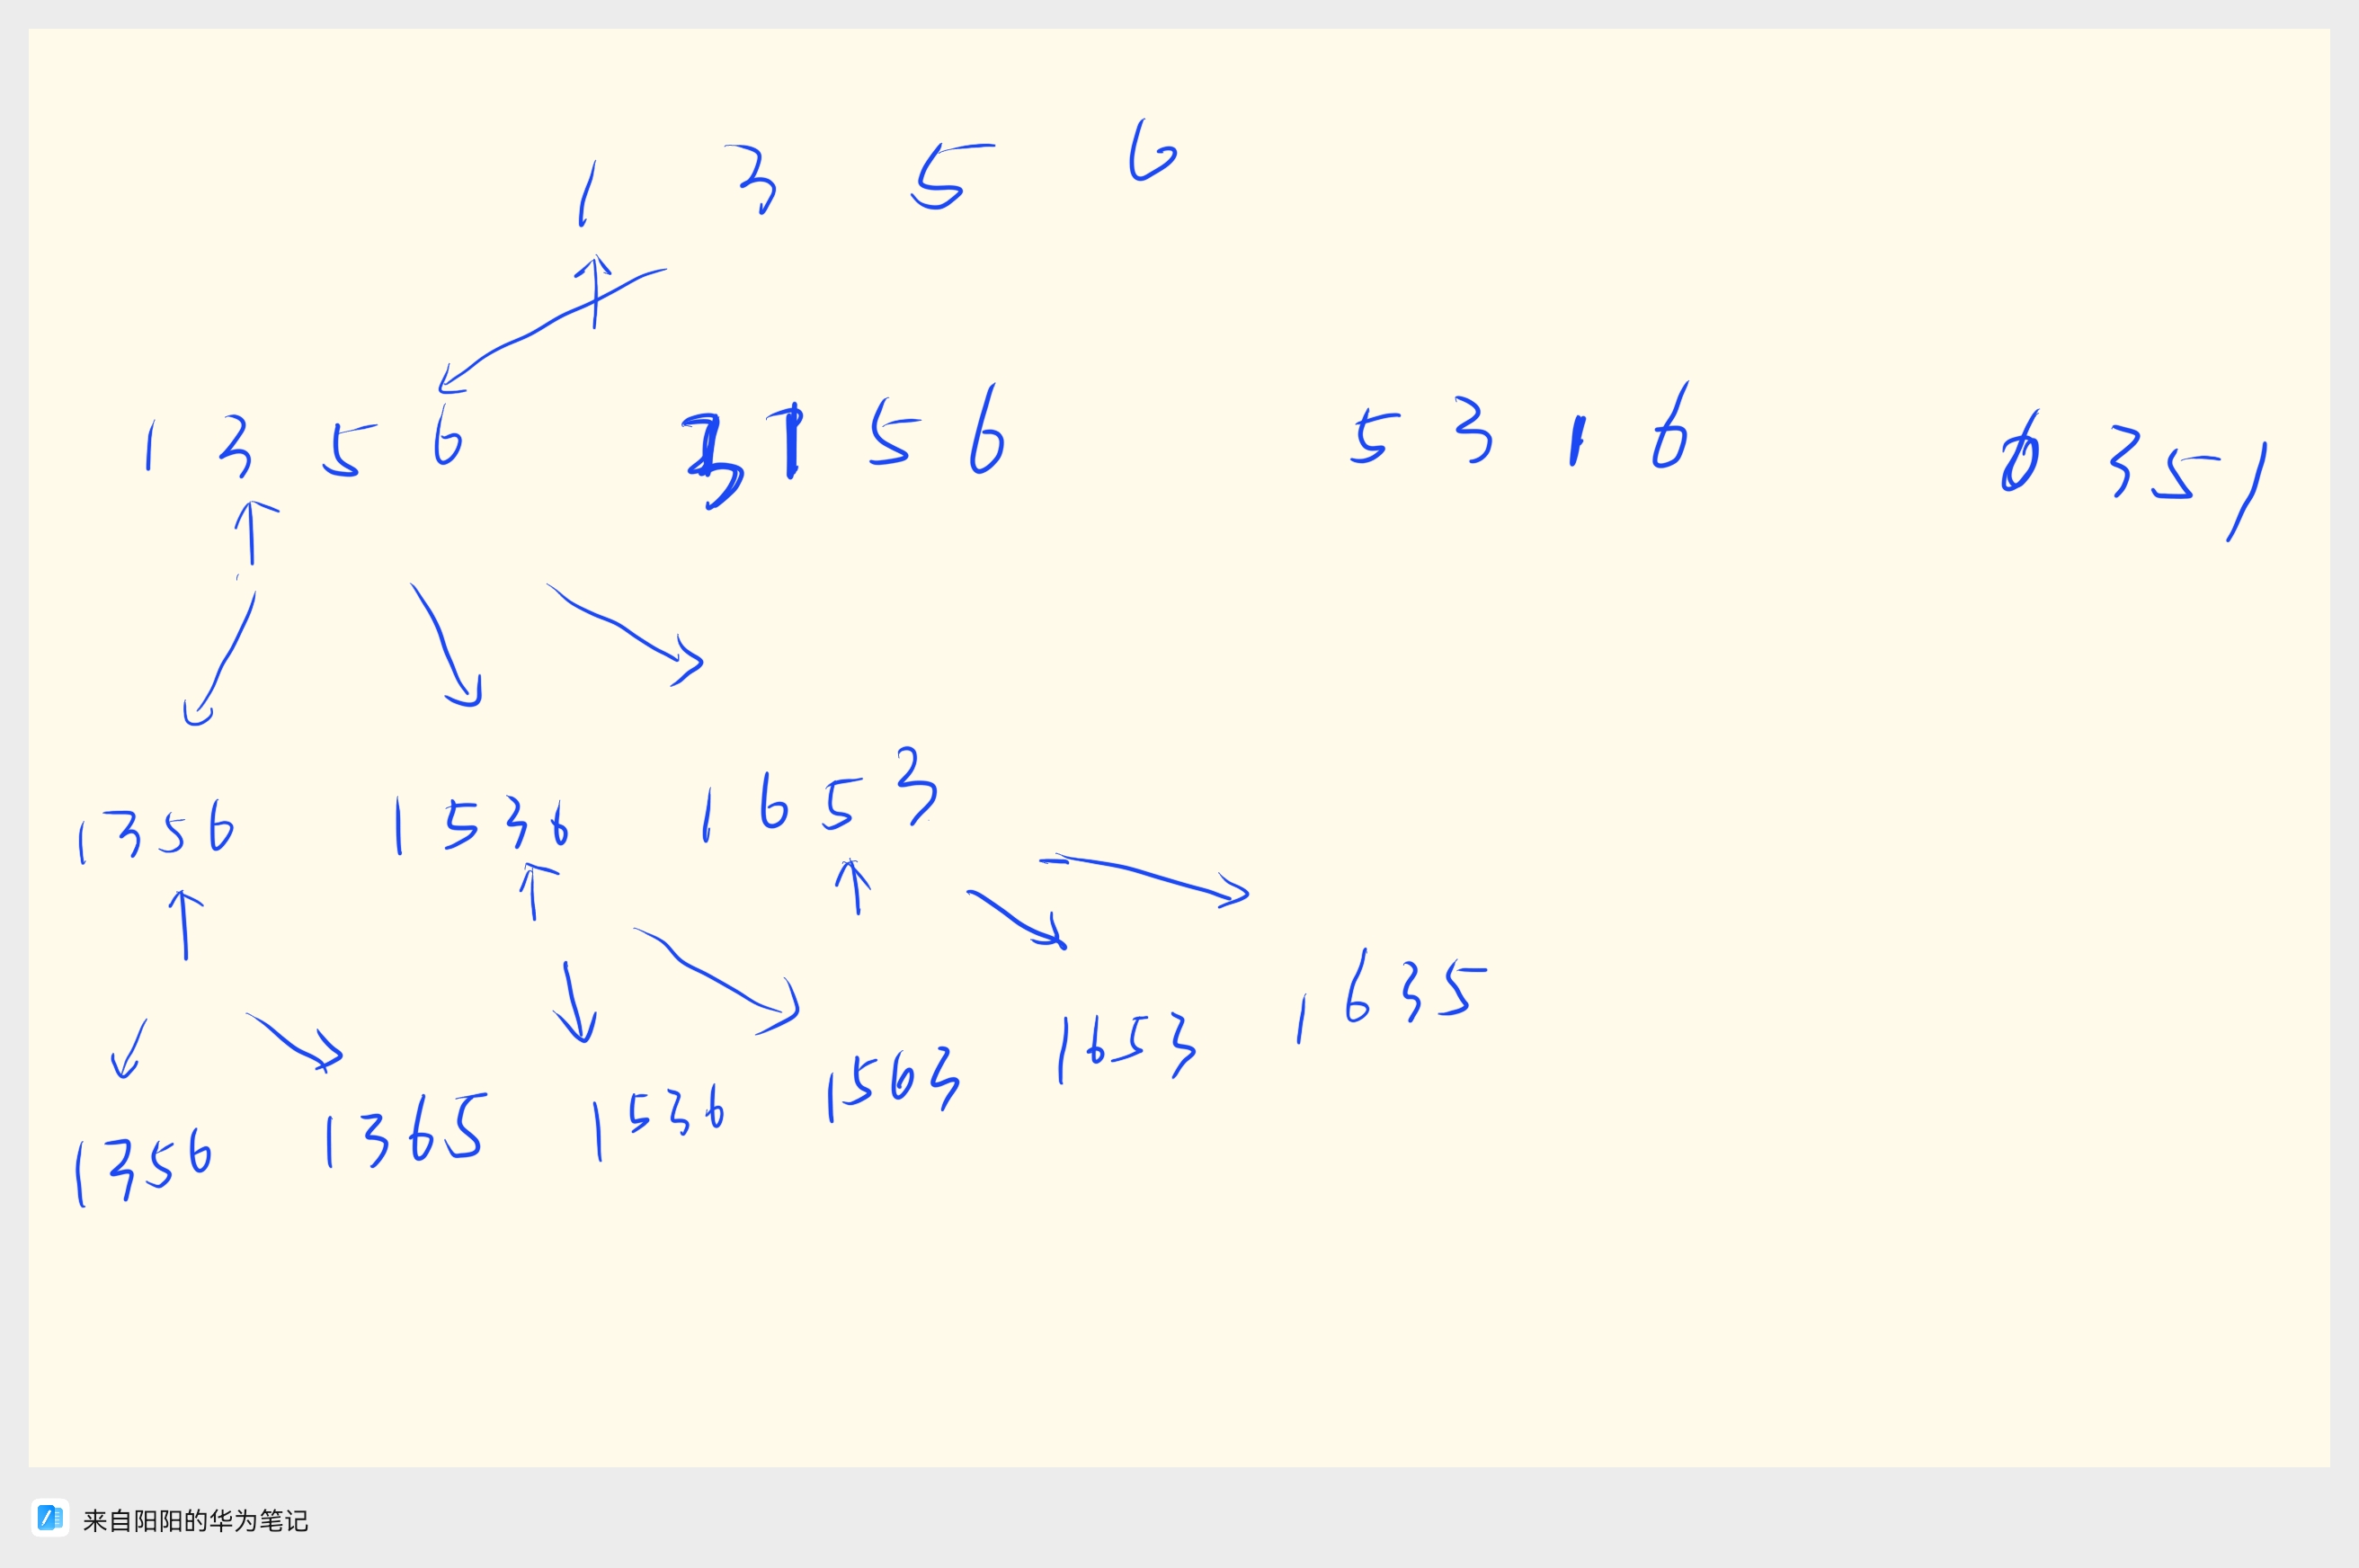 1 3 5 6
1 3 5 6 3 1 5 6 5 3 1 6 6 3 5 1
1 3 5 6 1 5 3 6 1 6 5 3
1 3 5 6 1 3 6 5 1 5 3 6 1 5 6 3 1 6 5 3 1 6 3 5
来自阳阳的华为笔记